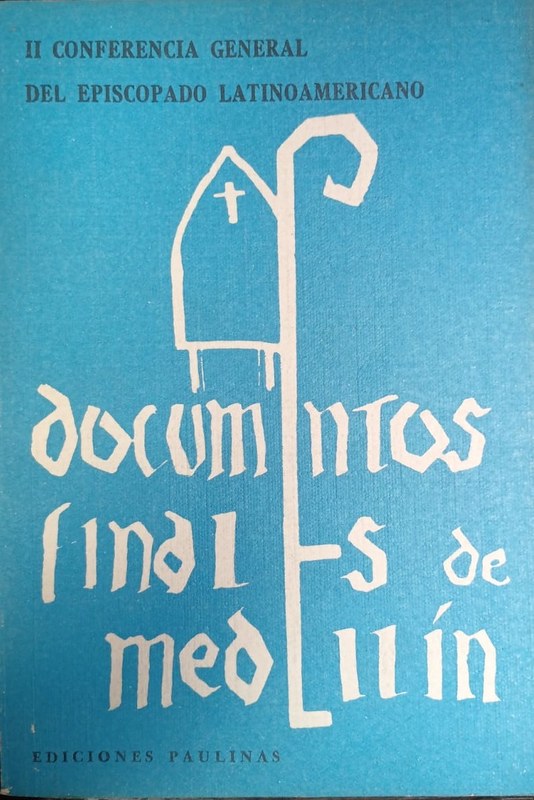 II CONFERENCIA GENERAL
DEL EPISCOPADO LATINOAMERICANO
documentos
finales de
medellín
EDICIONES PAULINAS